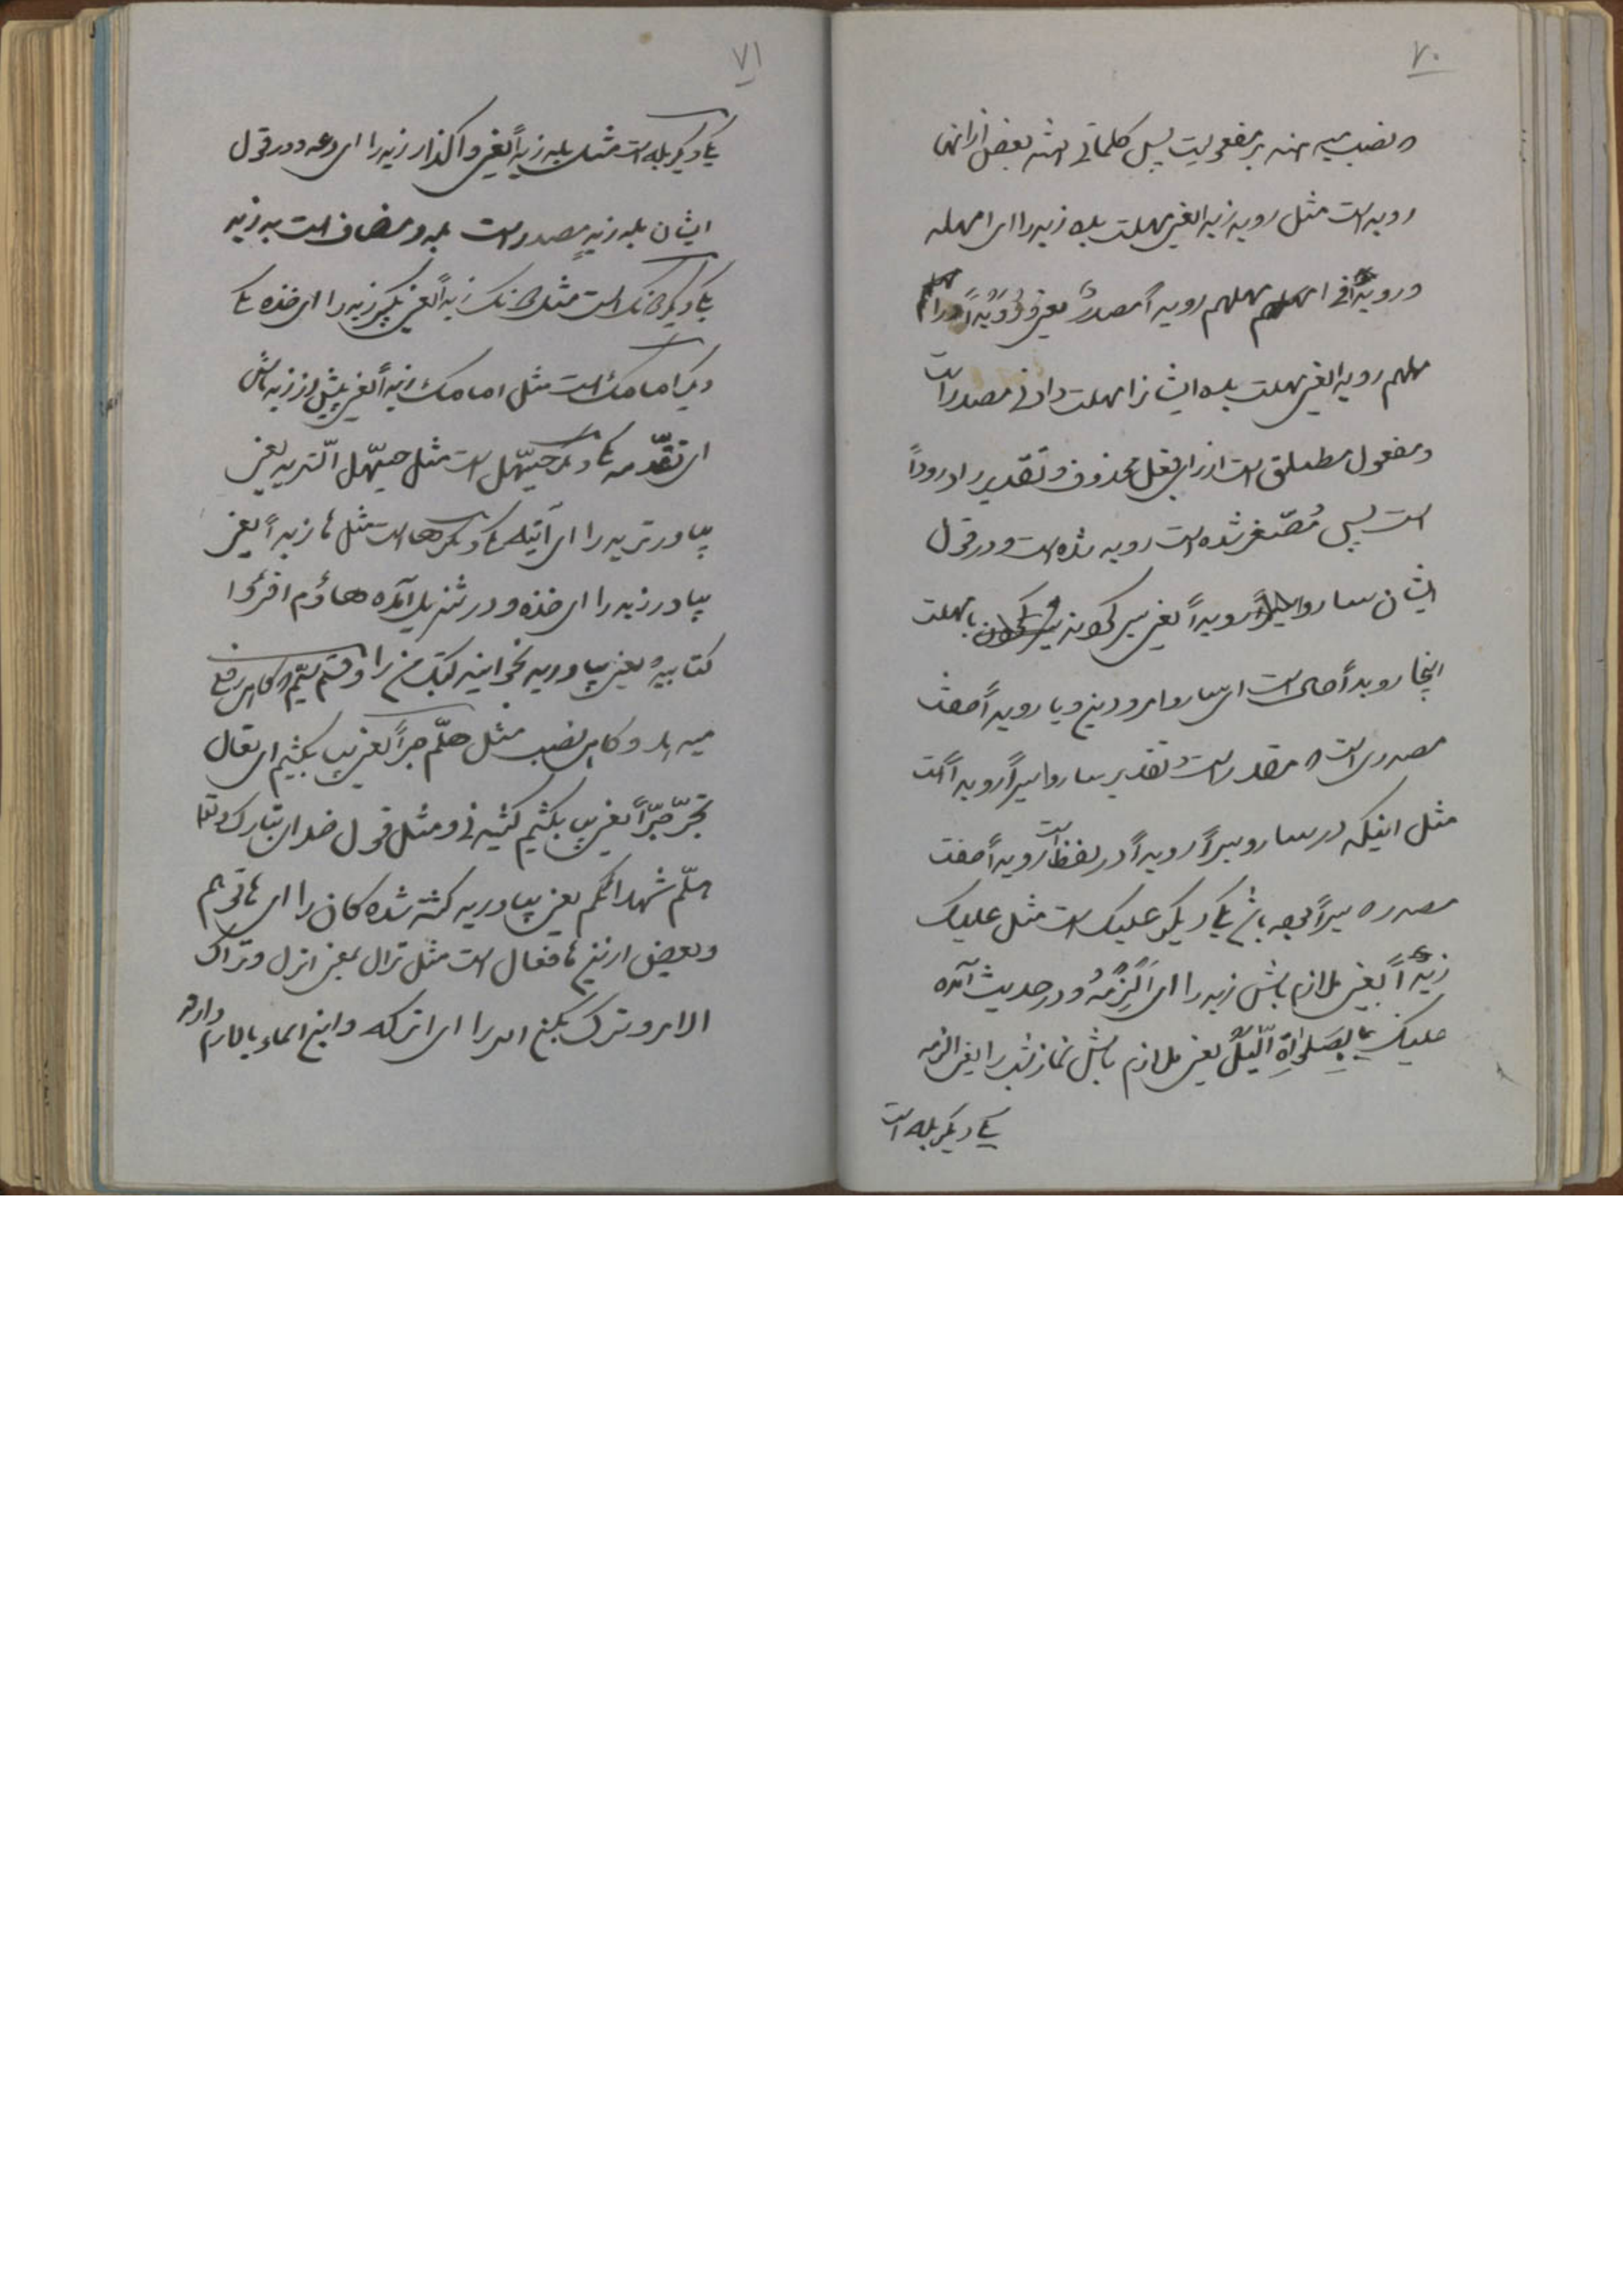 ۷۰
و نصب میدهند بر مفعولیت پس کلماتی هستند بعض از آنها
روید است مثل روید زیدا یعنی مهلت بده زید را ای امهله
و رویدا فی امهلهم رویدا مصدر یعنی
مهلهم رویدا یعنی مهلت بده ایشانرا مهلت دادنی مصدر است
و مفعول مطلق است از برای فعل محذوف و تقدیر ارود رودا
است پس مُصَغّر شده است روید شده است و در قول
ایشان ساروا رویدا یعنی سیر کردند با مهلت
اینجا رویدا حال است ای ساروا مرودین و یا رویدا صفت
مصدری است که مقدر است و تقدیر ساروا سیراً رویداً است
مثل اینکه در ساروا سیراً رویداً در لفظ است رویداً صفت
مصدر که سیراً بوده باشد یکی دیگر علیک است مثل علیک
زیداً یعنی ملازم باش زید را ای اَلْزِمْهُ و در حدیث آمده
علیک بِصَلواةِ الّلیْل یعنی ملازم باش نماز شب را یعنی الزمه
یکی دیگر بله است
۷۱
یکی دیگر بله است مثل بله زیداً یعنی واگذار زید را ای دعه و در قول
ایشان بله زیدٍ مصدر است بله و مضاف است به زید
یکی دیگر دونک است مثل دونک زیداً یعنی بگیر زید را ای خذه یکی
دیگر امامک است مثل امامک زیداً یعنی پیش از زید باش
ای تقدّمه یکی دیگر حیّهل است مثل حیّهل الثرید یعنی
بیاور ترید را ای آتیه یکی دیگر ها است مثل ها زیداً یعنی
بیاور زید را ای خذه و در تنزیل آمده هاؤم اقرؤا
کتابیه یعنی بیاورید بخوانید کتاب من را و قسم سیّم گاهی رفع
میدهد و گاهی نصب مثل هلّم جراً یعنی بیا بکشیم ای تعال
نجرّ جرّاً یعنی بیا بکشیم کشیدنی و مثل قول خدای تبارک و تعالی
هلّم شهدائکم یعنی بیاورید کشته شده کان را ای هاتوهم
و بعض از اینها فعال است مثل تراک یعنی اترک و تراک
الامر و ترک بکن امر را ای اترکه و این اسماء